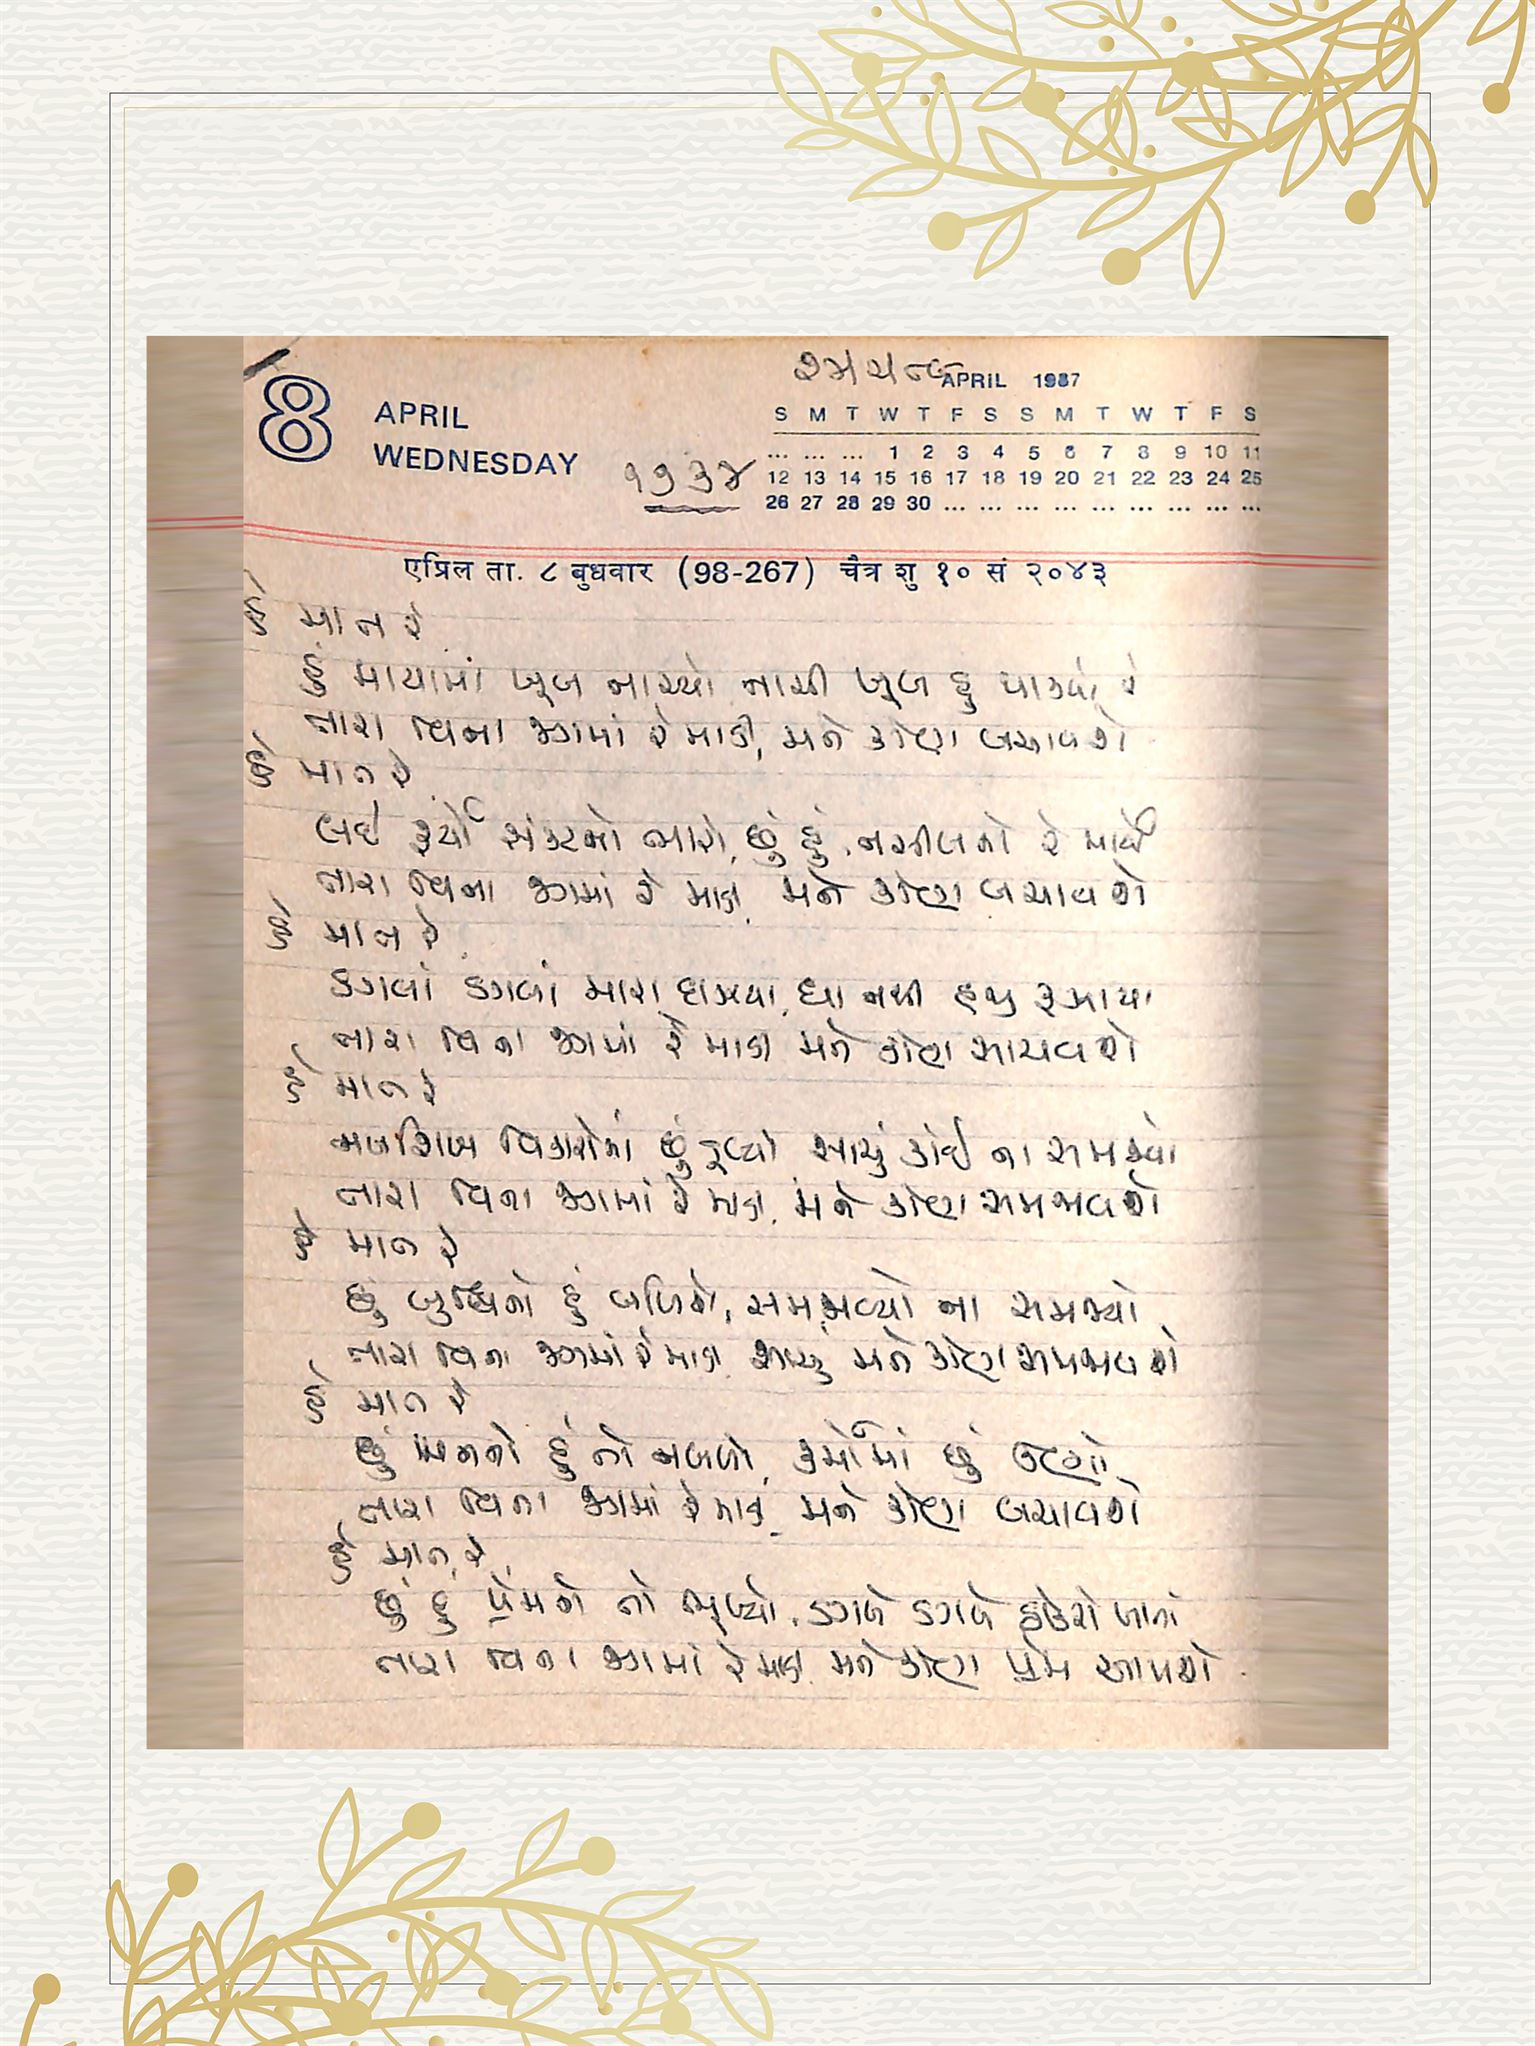 8
APRIL
WEDNESDAY
૧૭૩૪
APRIL 1987
S M T W T F S S M T W T F S
... ... ... 1 2 3 4 5 6 7 8 9 10 11
12 13 14 15 16 17 18 19 20 21 22 23 24 25
26 27 28 29 30 ... ... ... ... ... ... ... ... ...
एप्रिल ता. ८ बुधवार (98-267) चैत्र शु १० सं २०४३
હે માત રે
હું માયામાં ખૂબ નાચ્યો નાચી ખૂબ હું થાક્યો રે
તારા વિના જગમાં રે માડી, મને કોણ બચાવશે
હે માત રે
લઈ ફર્યો ભારો, છું હું, નો રે
તારા વિના જગમાં રે માડી, મને કોણ બચાવશે
હે માત રે
ડગલાં ડગલાં મારા દાઝ્યા, ઘા નથી હજુ રૂઝાયા
તારા વિના જગમાં રે માડી મને કોણ સાચવશે
હે માત રે
નખશિખ વિકારોમાં છું ડૂબ્યો, સાચું કોઈ ના સમજ્યો
તારા વિના જગમાં રે માડી, મને કોણ સમજાવશે
હે માત રે
છું બુદ્ધિનો હું બળિયો, સમજાવ્યો ના સમજ્યો
તારા વિના જગમાં રે માડી, સાચું મને કોણ સમજાવશે
હે માત રે
છું મનનો હું તો નબળો, કર્મોમાં છું
તારા વિના જગમાં રે માડી, મને કોણ બચાવશે
હે માત રે
છું હું પ્રેમનો તો ભૂખ્યો, ડગલે ડગલે ઠોકરો ખાતો
તારા વિના જગમાં રે માડી મને કોણ પ્રેમ આપશે